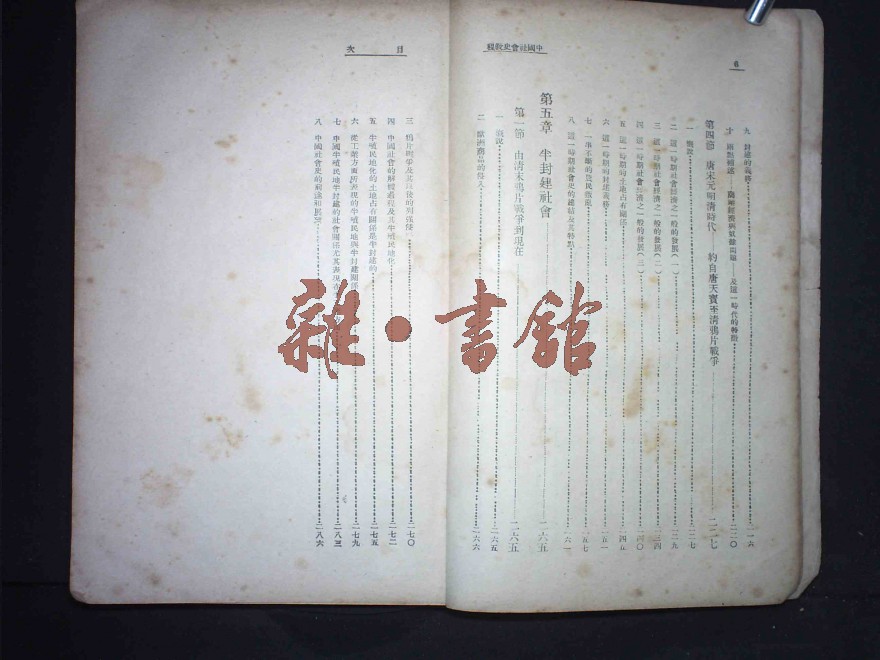 6
中國社會史教程
九 封建的義務……二一六
十 兩點補述——……——及這一時代的特徵……二二〇
第四節 唐末元明清時代——約自唐天寶至清鴉片戰爭——二二七
一 概説……二二七
二 這一時期社會經濟之一般的發展(一)……二二九
三 這一時期社會經濟之一般的發展(二)……二三四
四 這一時期社會經濟之一般的發展(三)……二四〇
五 這一時期的土地占有關係……二四五
六 這一時期的封建義務……二五一
七 一串不斷的農民叛亂……二五七
八 這一時期社會史的總結及其特點……二六一
第五章 半封建社會——二六五
第一節 由清末鴉片戰爭到現在——二六五
一 概説……二六五
二 歐洲商品的侵入……二六六
目 次
三 鴉片戰爭及其以後的列強侵……二七〇
四 中國社會的解體過程及其半殖民地化……二七二
五 半殖民地化的土地占有關係是半封建的……二七五
六 從工業方面所表現的半殖民地與半封建關係……二七九
七 中國半殖民地半封建的社會關係尤其表現……二八三
八 中國社會史的前途和展望……二八六
雜·書館